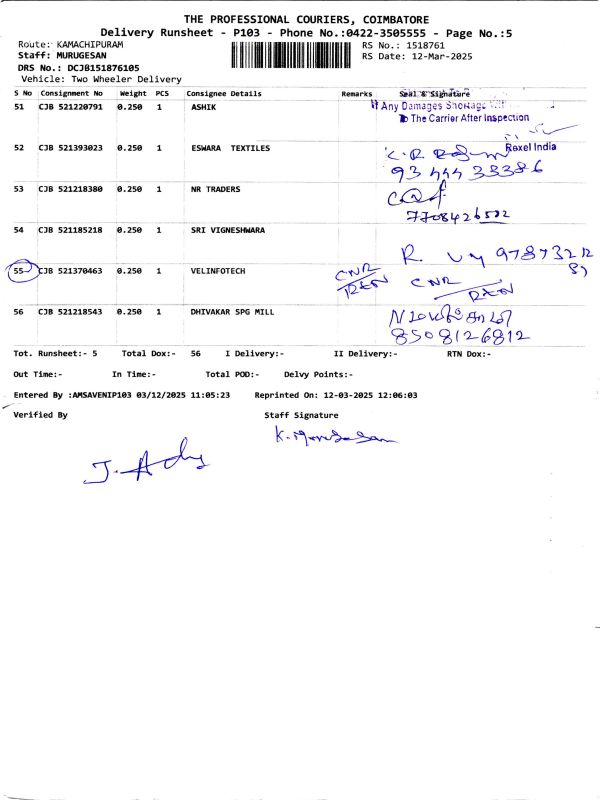 THE PROFESSIONAL COURIERS, COIMBATORE
Delivery Runsheet - P103 - Phone No.:0422-3505555 - Page No.:5
Route: KAMACHIPURAM RS No.: 1518761
Staff: MURUGESAN RS Date: 12-Mar-2025
DRS No.: DCJB151876105
Vehicle: Two Wheeler Delivery
S No Consignment No Weight PCS Consignee Details Remarks Seal & Signature
51 CJB 521220791 0.250 1 ASHIK
Any Damages Shortage Will
To The Carrier After Inspection
Rexel India
52 CJB 521393023 0.250 1 ESWARA TEXTILES
93444 33386
53 CJB 521218380 0.250 1 NR TRADERS
7708426502
54 CJB 521185218 0.250 1 SRI VIGNESHWARA
R. 
55 CJB 521370463 0.250 1 VELINFOTECH CNR CNR
56 CJB 521218543 0.250 1 DHIVAKAR SPG MILL
8508126812
Tot. Runsheet:- 5 Total Dox:- 56 I Delivery:- II Delivery:- RTN Dox:-
Out Time:- In Time:- Total POD:- Delvy Points:-
Entered By :AMSAVENIP103 03/12/2025 11:05:23 Reprinted On: 12-03-2025 12:06:03
Verified By Staff Signature
K. Murugesan